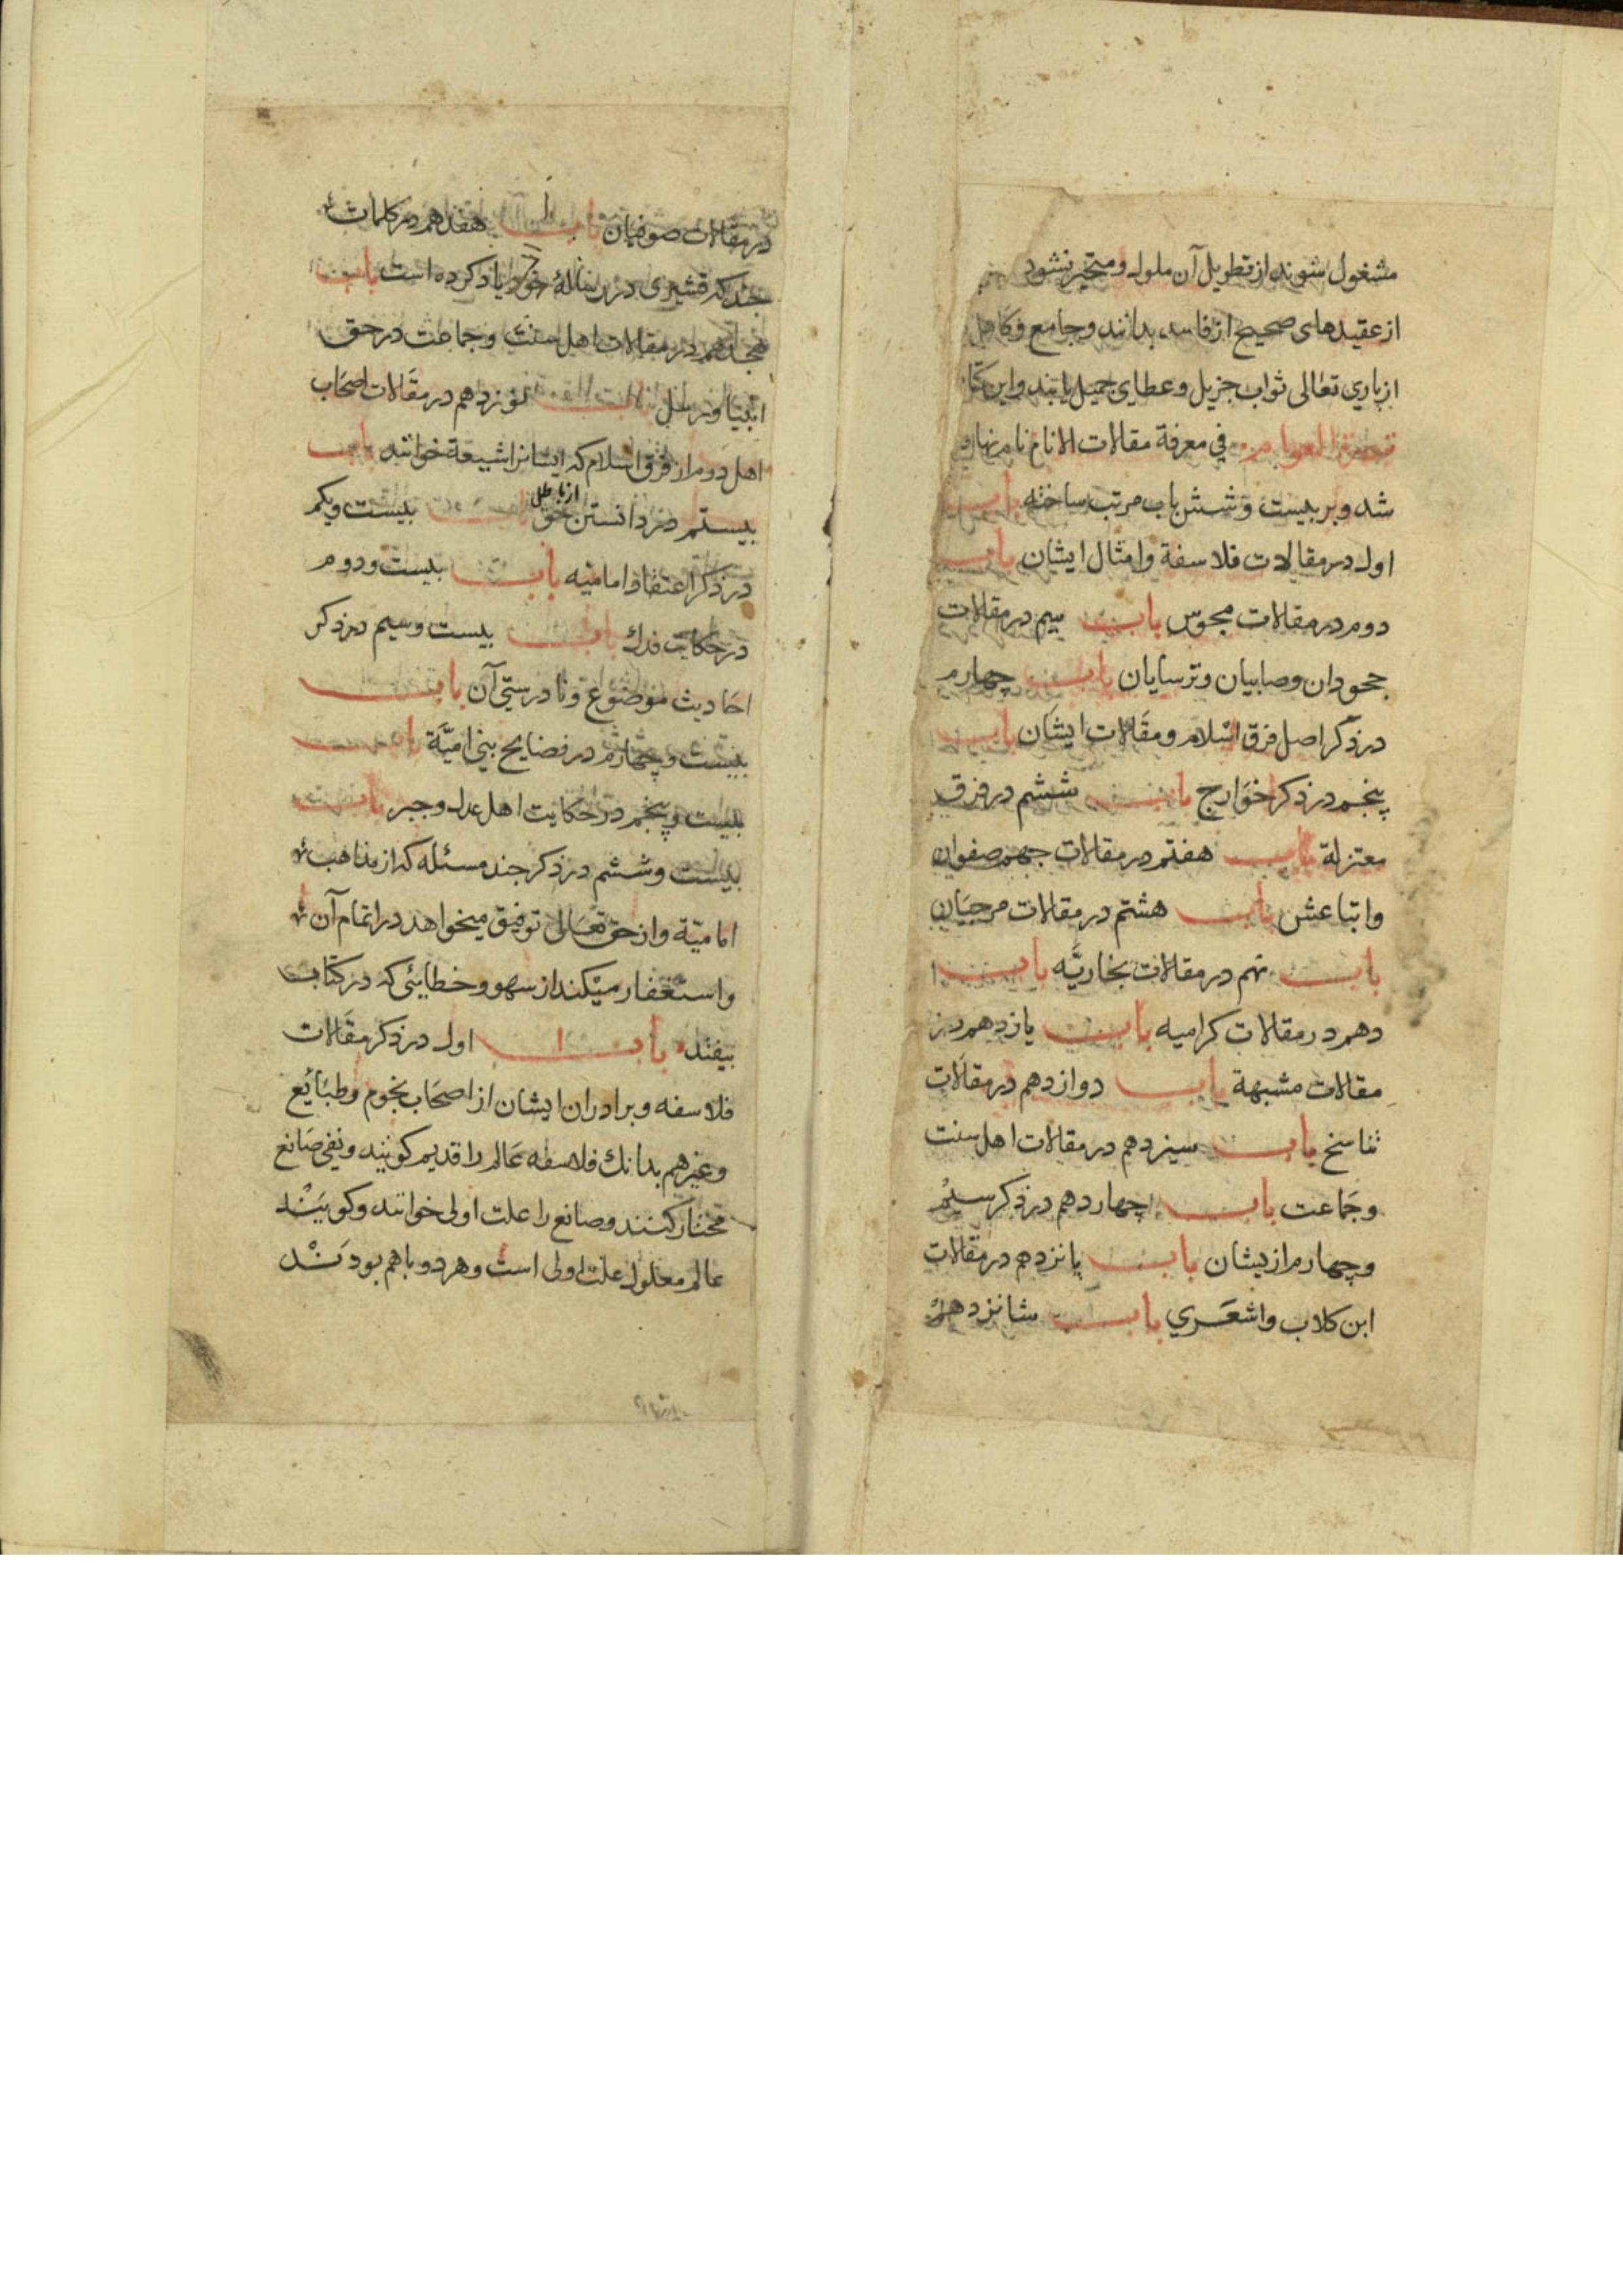 مشغول شوند از تطویل آن ملول و متحیر نشود
از عقیدهای صحیح از فاسد بدانند و جامع و کامل
از باری تعالی ثواب جزیل و عطای جمیل یابند و این کتا
تبصرة العوام فی معرفة مقالات الانام نام نهاده
شد و بر بیست و شش باب مرتب ساخته باب
اول در مقالات فلاسفة و امثال ایشان باب
دوم در مقالات مجوس باب سیم در مقالات
جحودان و صابیان و ترسایان باب چهارم
در ذکر اصل فرق اسلام و مقالات ایشان باب
پنجم در ذکر خوارج باب ششم در فرق
معتزلة باب هفتم در مقالات جهم صفوان
و اتباعش باب هشتم در مقالات مرجیان
باب نهم در مقالات نجاریه باب
دهم در مقالات کرامیه باب یازدهم در
مقالات مشبهة باب دوازدهم در مقالات
تناسخ باب سیزدهم در مقالات اهل سنت
و جماعت باب چهاردهم در ذکر سیم
و چهارم از یشان باب پانزدهم در مقالات
ابن کلاب و اشعری باب شانزدهم
در مقالات صوفیان باب هفدهم در کلمات
چند که قشیری در رسالهٔ خود یاد کرده است باب
هجدهم در مقالات اهل سنت و جماعت در حق
انبیا و رسل باب نوزدهم در مقالات اصحاب
اهل دوم از فرق اسلام که ایشانرا شیعة خوانند باب
بیستم در دانستن حق از باطل باب بیست و یکم
در ذکر اعتقاد امامیه باب بیست و دوم
در حکایت فدك باب بیست و سیم در ذکر
احادیث موضوع و نادرستی آن باب
بیست و چهارم در فضایح بنی امیّة باب
بیست و پنجم در حکایت اهل عدل و جبر باب
بیست و ششم در ذکر چند مسئله که از مذاهب
امامیّة و از حق تعالی توفیق میخواهد در اتمام آن
و استغفار میکند از سهو و خطایئی که در کتاب
بیفتد باب اول در ذکر مقالات
فلاسفه و برادران ایشان از اصحاب نجوم و طبایع
و غیرهم بدانك فلاسفه عالم را قدیم کویند و نفی صانع
مختار کنند و صانع را علت اولی خوانند و کویند
عالم معلول علت اولی است و هر دو باهم بودند